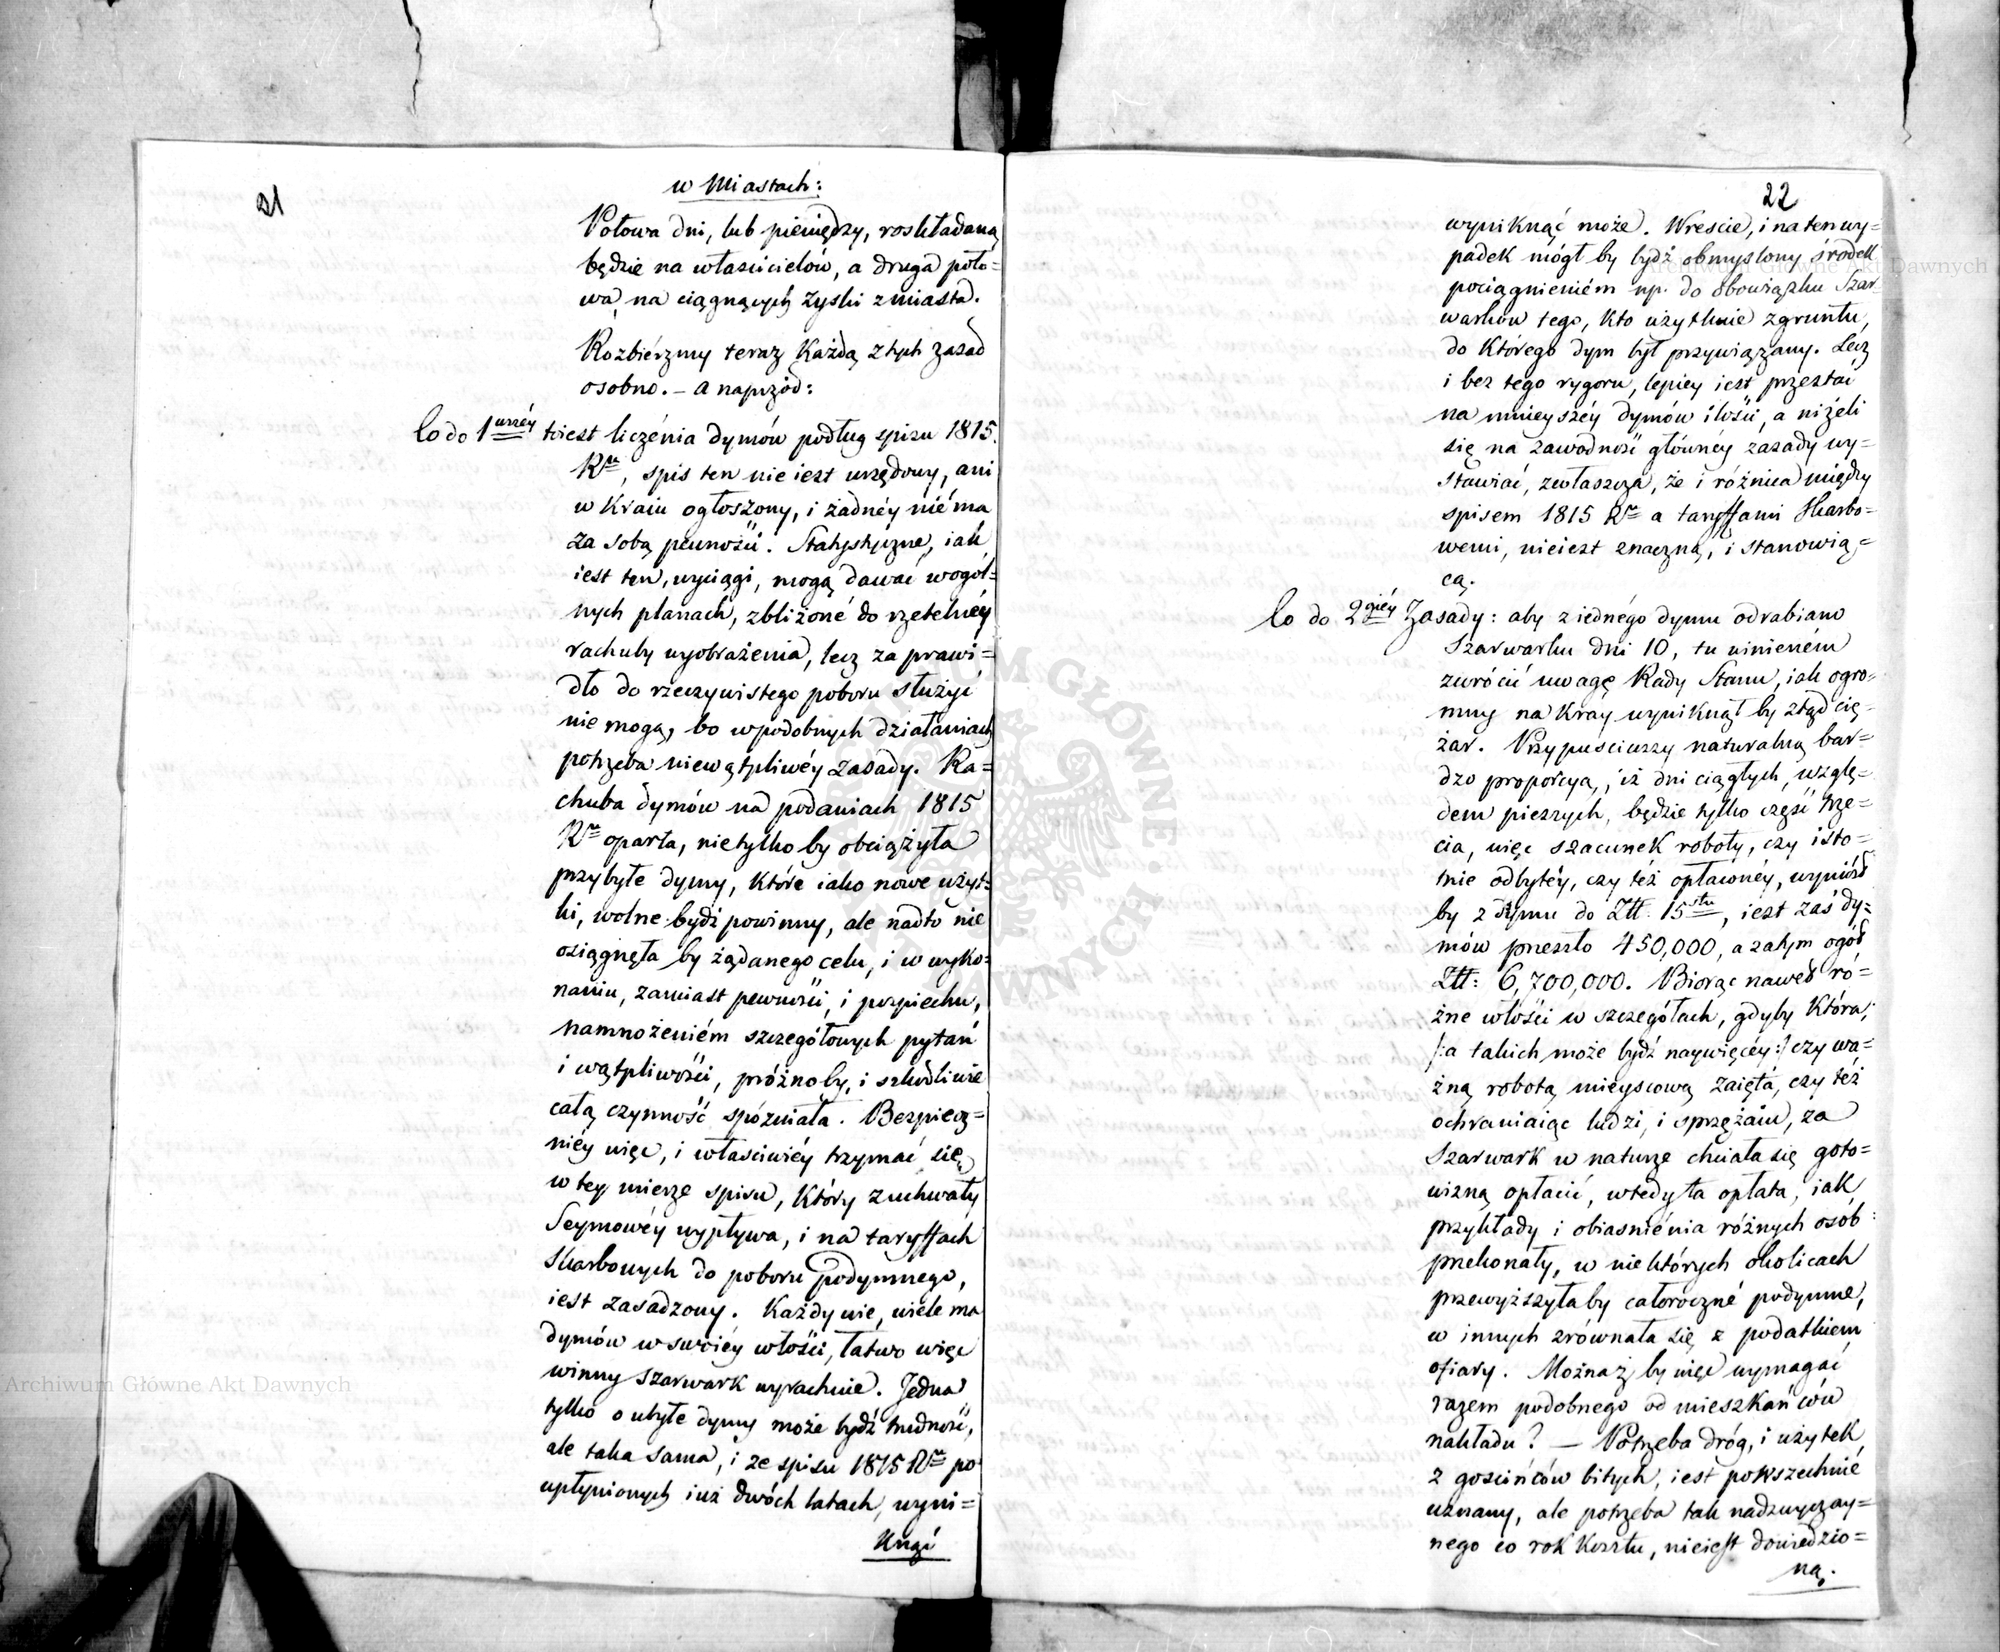 21
w Miastach:
Połowa dni, lub pieniędzy, roskładaną
będzie na właścicielów, a druga poło=
wa na ciągnących zyski z miasta.
Rozbiérzmy teraz każdą z tych zasad
osobno. – a naprzód:
Co do 1wszéy toiest liczénia dymów podług spisu 1815.
Ru, spis ten nie iest urzędowy, ani
w Kraiu ogłoszony, i żadnéy niéma
za sobą pewności. Statystyczne, iak
iest ten, wyciągi, mogą dawać wogól=
nych planach, zbliżoné do rzetelnéy
rachuby wyobrażenia, lecz za prawi=
dło do rzeczywistego poboru służyć
nie mogą, bo w podobnych działaniach
potrzeba niewątpliwéy zasady. Ra=
chuba dymów na podaniach 1815
Ru oparta, nietylko by obciążyła
przybyłe dymy, które iako nowe użyt=
ki, wolne bydź powinny, ale nadto nie
osiągnęła by żądanego celu, i w wyko=
naniu, zamiast pewności, i pospiechu,
namnożeniém szczegółowych pytań
i wątpliwości, próżnoby, i szkodliwie
całą czynność spózniała. Bezpiecz=
niéy więc, i właściwiéy trzymać się
w tey mierze spisu, który z uchwały
Seymowéy wypływa, i na taryffach
Skarbowych do poboru podymnego,
iest zasadzony. Każdy wie, wiele ma
dymów w swoiéy włości, łatwo więc
winny szarwark wyrachuie. Jedna
tylko o ubyłe dymy może bydź trudność,
ale taka sama, i ze spisu 1815 Ru po
upłynionych iuż dwóch latach, wyni=
knąć
22
wyniknąć może. Wreście, i na ten wy=
padek mógł by bydź obmyslony środek
pociągnieniém np. do obowiązku Szar=
warków tego, kto użytkuie z gruntu,
do którego dym był przywiązany. Lecz
i bez tego rygoru, lepiey iest przestać
na mnieyszéy dymów ilości, a niżeli
się na zawodność główney zasady wy=
stawiać, zwłaszcza, że i różnica między
spisem 1815 Ru a taryffami Skarbo=
wemi, nieiest znaczną, i stanowią=
cą.
Co do 2giéy Zasady: aby z iednégo dymu odrabiano
Szarwarku dni 10, tu winieném
zwrócić uwagę Rady Stanu, iak ogro=
mny na Kray wyniknął by ztąd cię=
żar. Przypuściwszy naturalną bar=
dzo proporcyą, iż dni ciągłych, wzglę=
dem pieszych, będzie tylko część trze=
cia, więc szacunek roboty, czy isto=
tnie odbytéy, czy też opłaconéy, wyniósł
by z dymu do Złł. 15stu, iest zaś dy=
mów przeszło 450,000, a zatym ogół
Złł: 6,700,000. Biorąc nawet ró=
żne włości w szczegółach, gdyby która,
/:a takich może bydź naywięcéy:/ czy wa=
żną robotą mieyscową zaięta, czy też
ochraniaiąc ludzi, i sprzężaiu, za
Szarwark w naturze chciała się goto=
wizną opłacić, wtedy ta opłata, iak
przykłady i obiasniénia różnych osób
przekonały, w niektórych okolicach
przewyższyłaby całoroczné podymne,
w innych zrównała się z podatkiem
ofiary. Możnaż by więc wymagać
razem podobnego od mieszkańców
nakładu? — Potrzeba dróg, i użytek
z gościńców bitych, iest powszechnie
uznany, ale potrzeba tak nadzwyczay=
nego co rok kosztu, nieiest dowiedzio=
ną.
Archiwum Główne Akt Dawnych
Archiwum Główne Akt Dawnych
ARCHIWUM GŁÓWNE AKT DAWNYCH